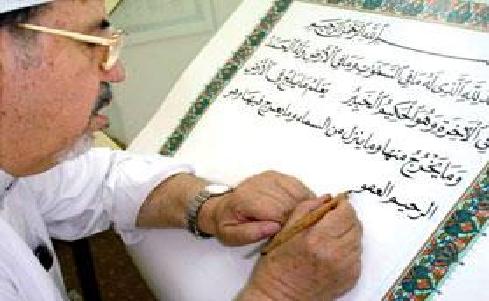 بسم الله الرحمن الرحيم
لله الذى له ما فى السموت وما فى الأرض وله الحمد
فى الآخرة وهو الحكيم الخبير يعلم ما يلج فى الأرض
وما يخرج منها وما ينزل من السماء وما يعرج فيها وهو
الرحيم الغفو